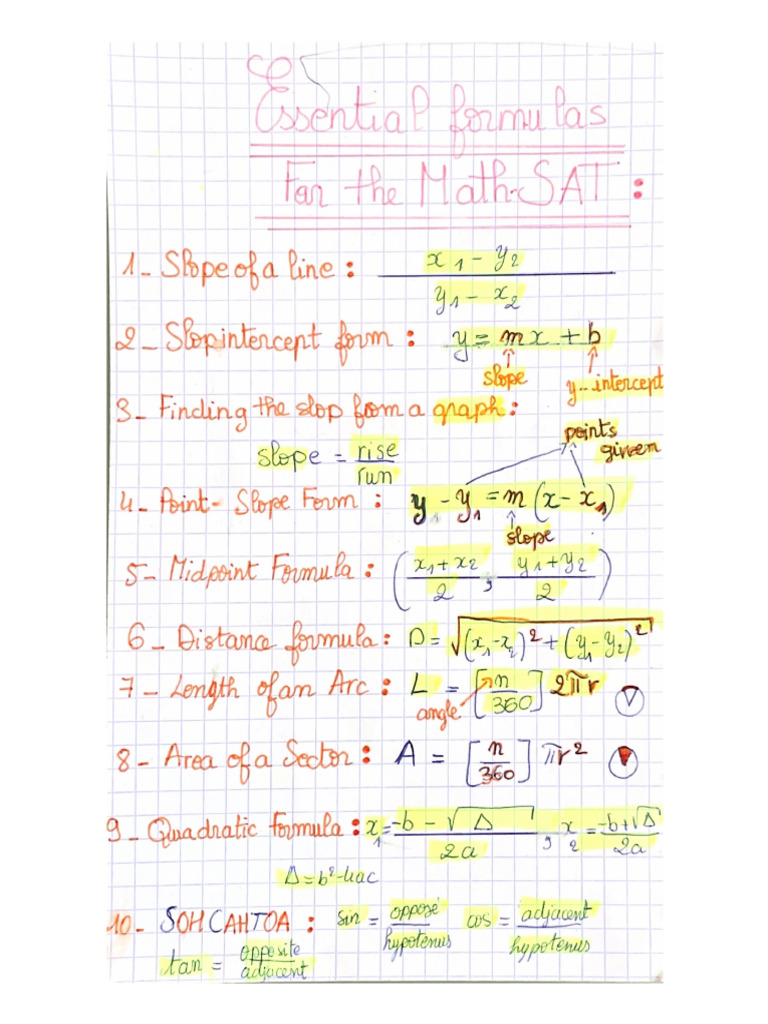 Essential formulas
For the Math-SAT :
1- Slope of a line : x1 - y2 / y1 - x2
2- Slopintercept form : y = mx + b
slope y-intercept
3- Finding the slop from a graph :
slope = rise / run
points given
4- Point-Slope Form : y - y1 = m (x - x1)
slope
5- Midpoint Formula : ( x1 + x2 / 2 , y1 + y2 / 2 )
6- Distance formula : D = √(x1-x2)² + (y1-y2)²
7- Length of an Arc : L = [n/360] 2πr
angle
8- Area of a Sector : A = [n/360] πr²
9- Quadratic formula : x1 = -b - √Δ / 2a , x2 = -b + √Δ / 2a
Δ = b² - 4ac
10- SOH CAHTOA : sin = opposé / hypotenus cos = adjacent / hypotenus
tan = opposite / adjacent